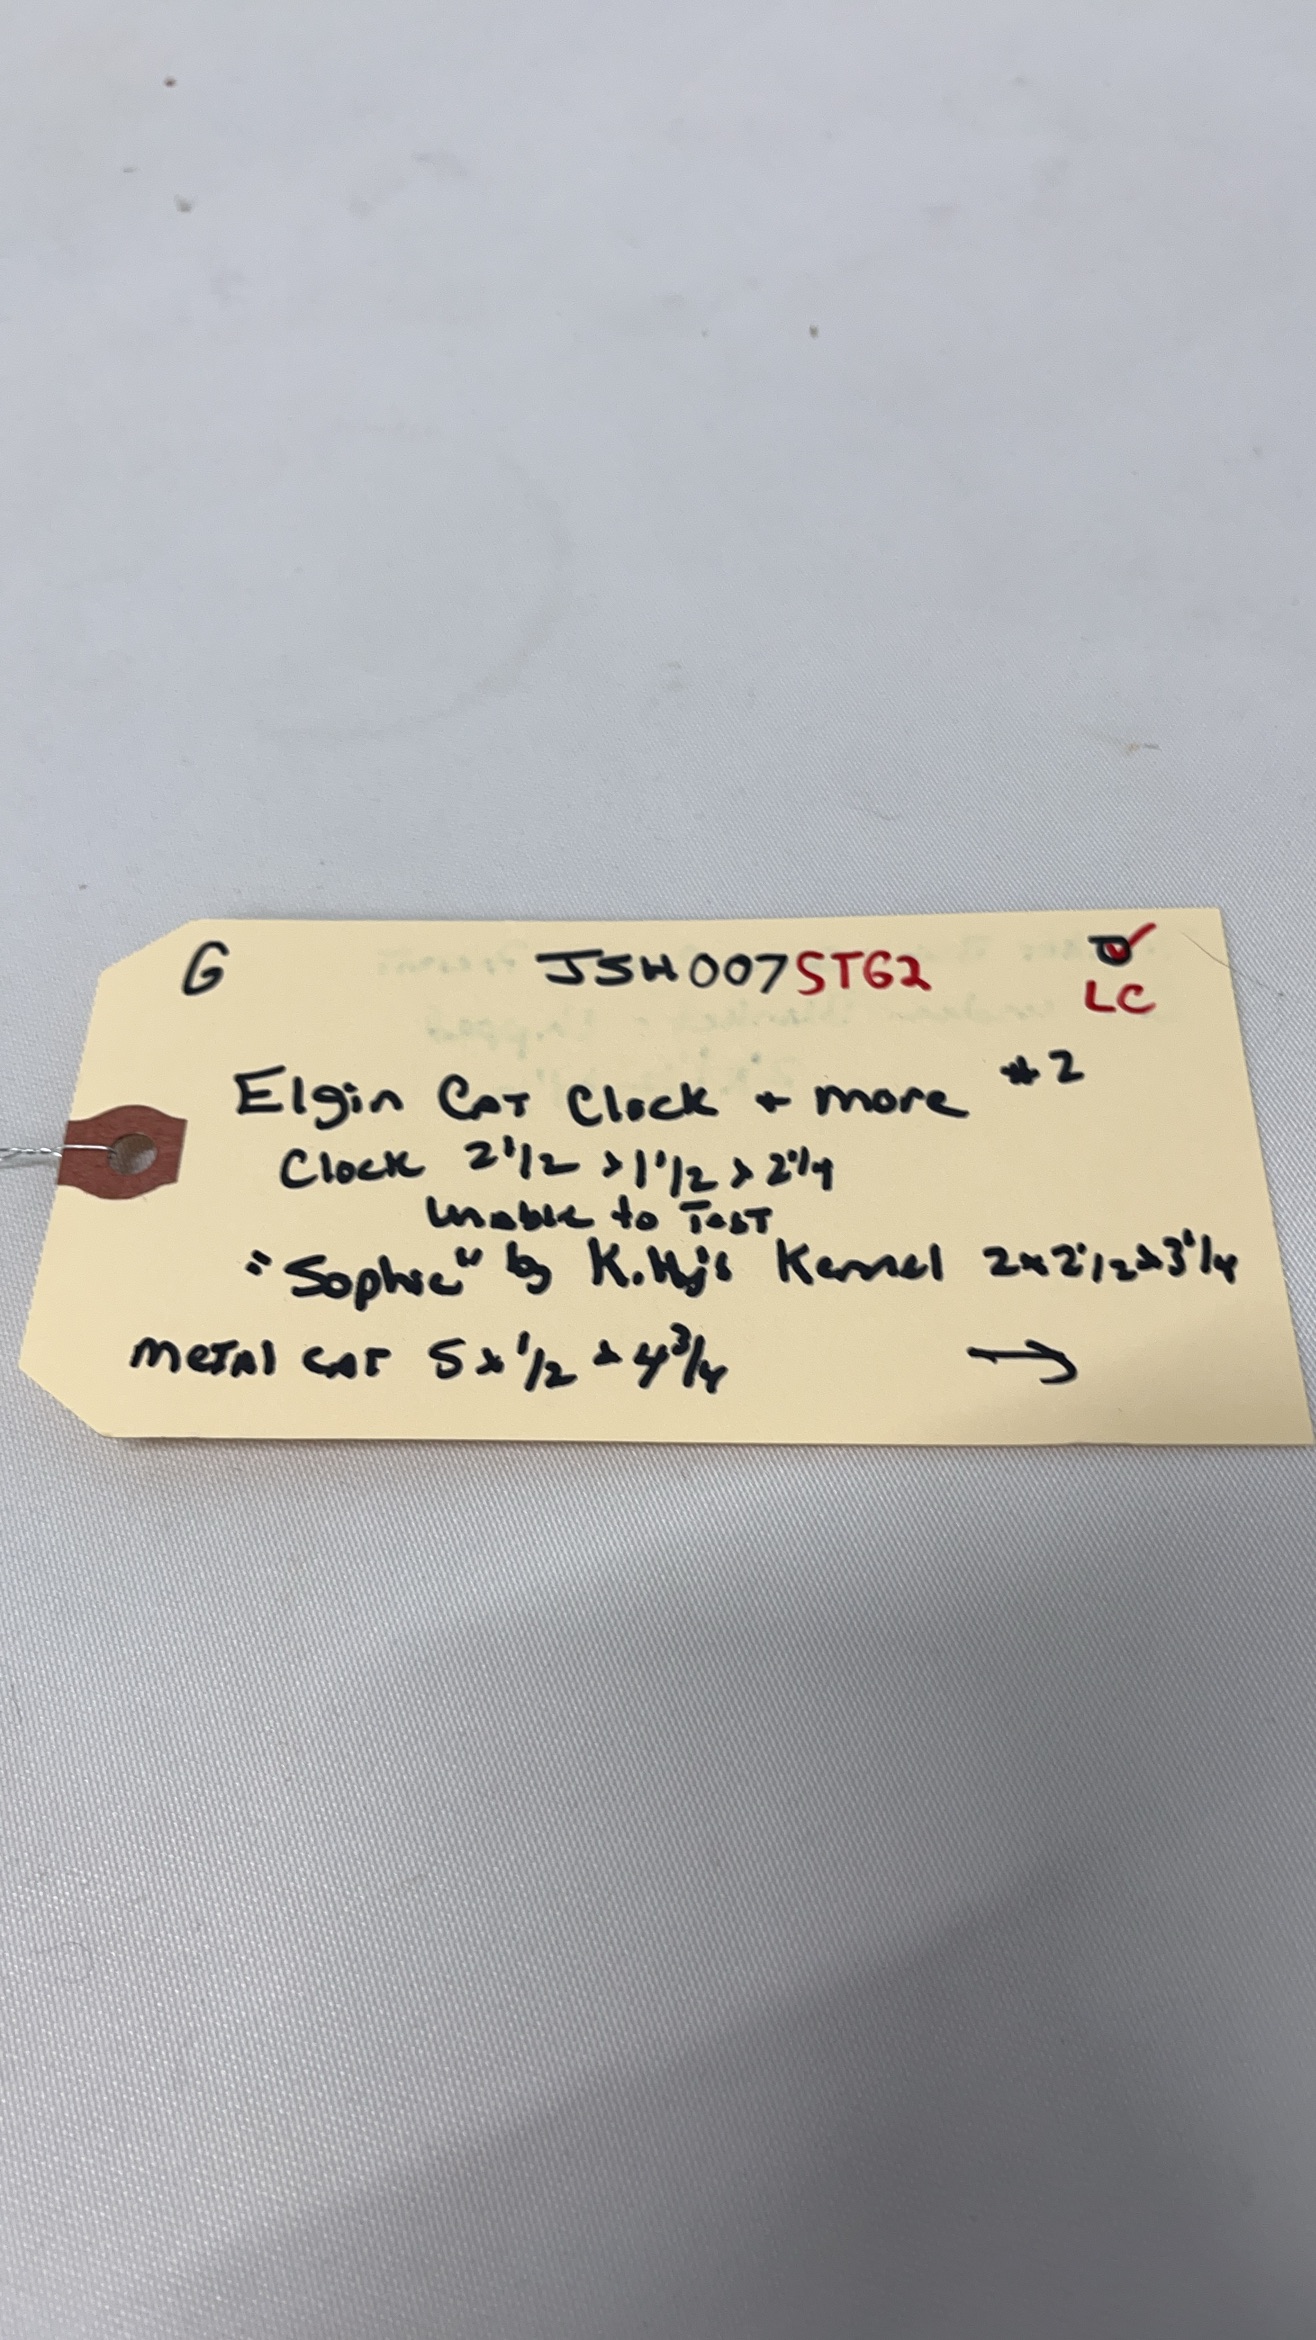 G JSH007STG2
LC
Elgin Cat Clock + more #2
Clock 2 1/2 x 1 1/2 x 2 1/4
Unable to Test
"Sophie" by K.Hj's Kennel 2 x 2 1/2 x 3 1/4
Metal Cat 5 x 1/2 x 4 3/4 →